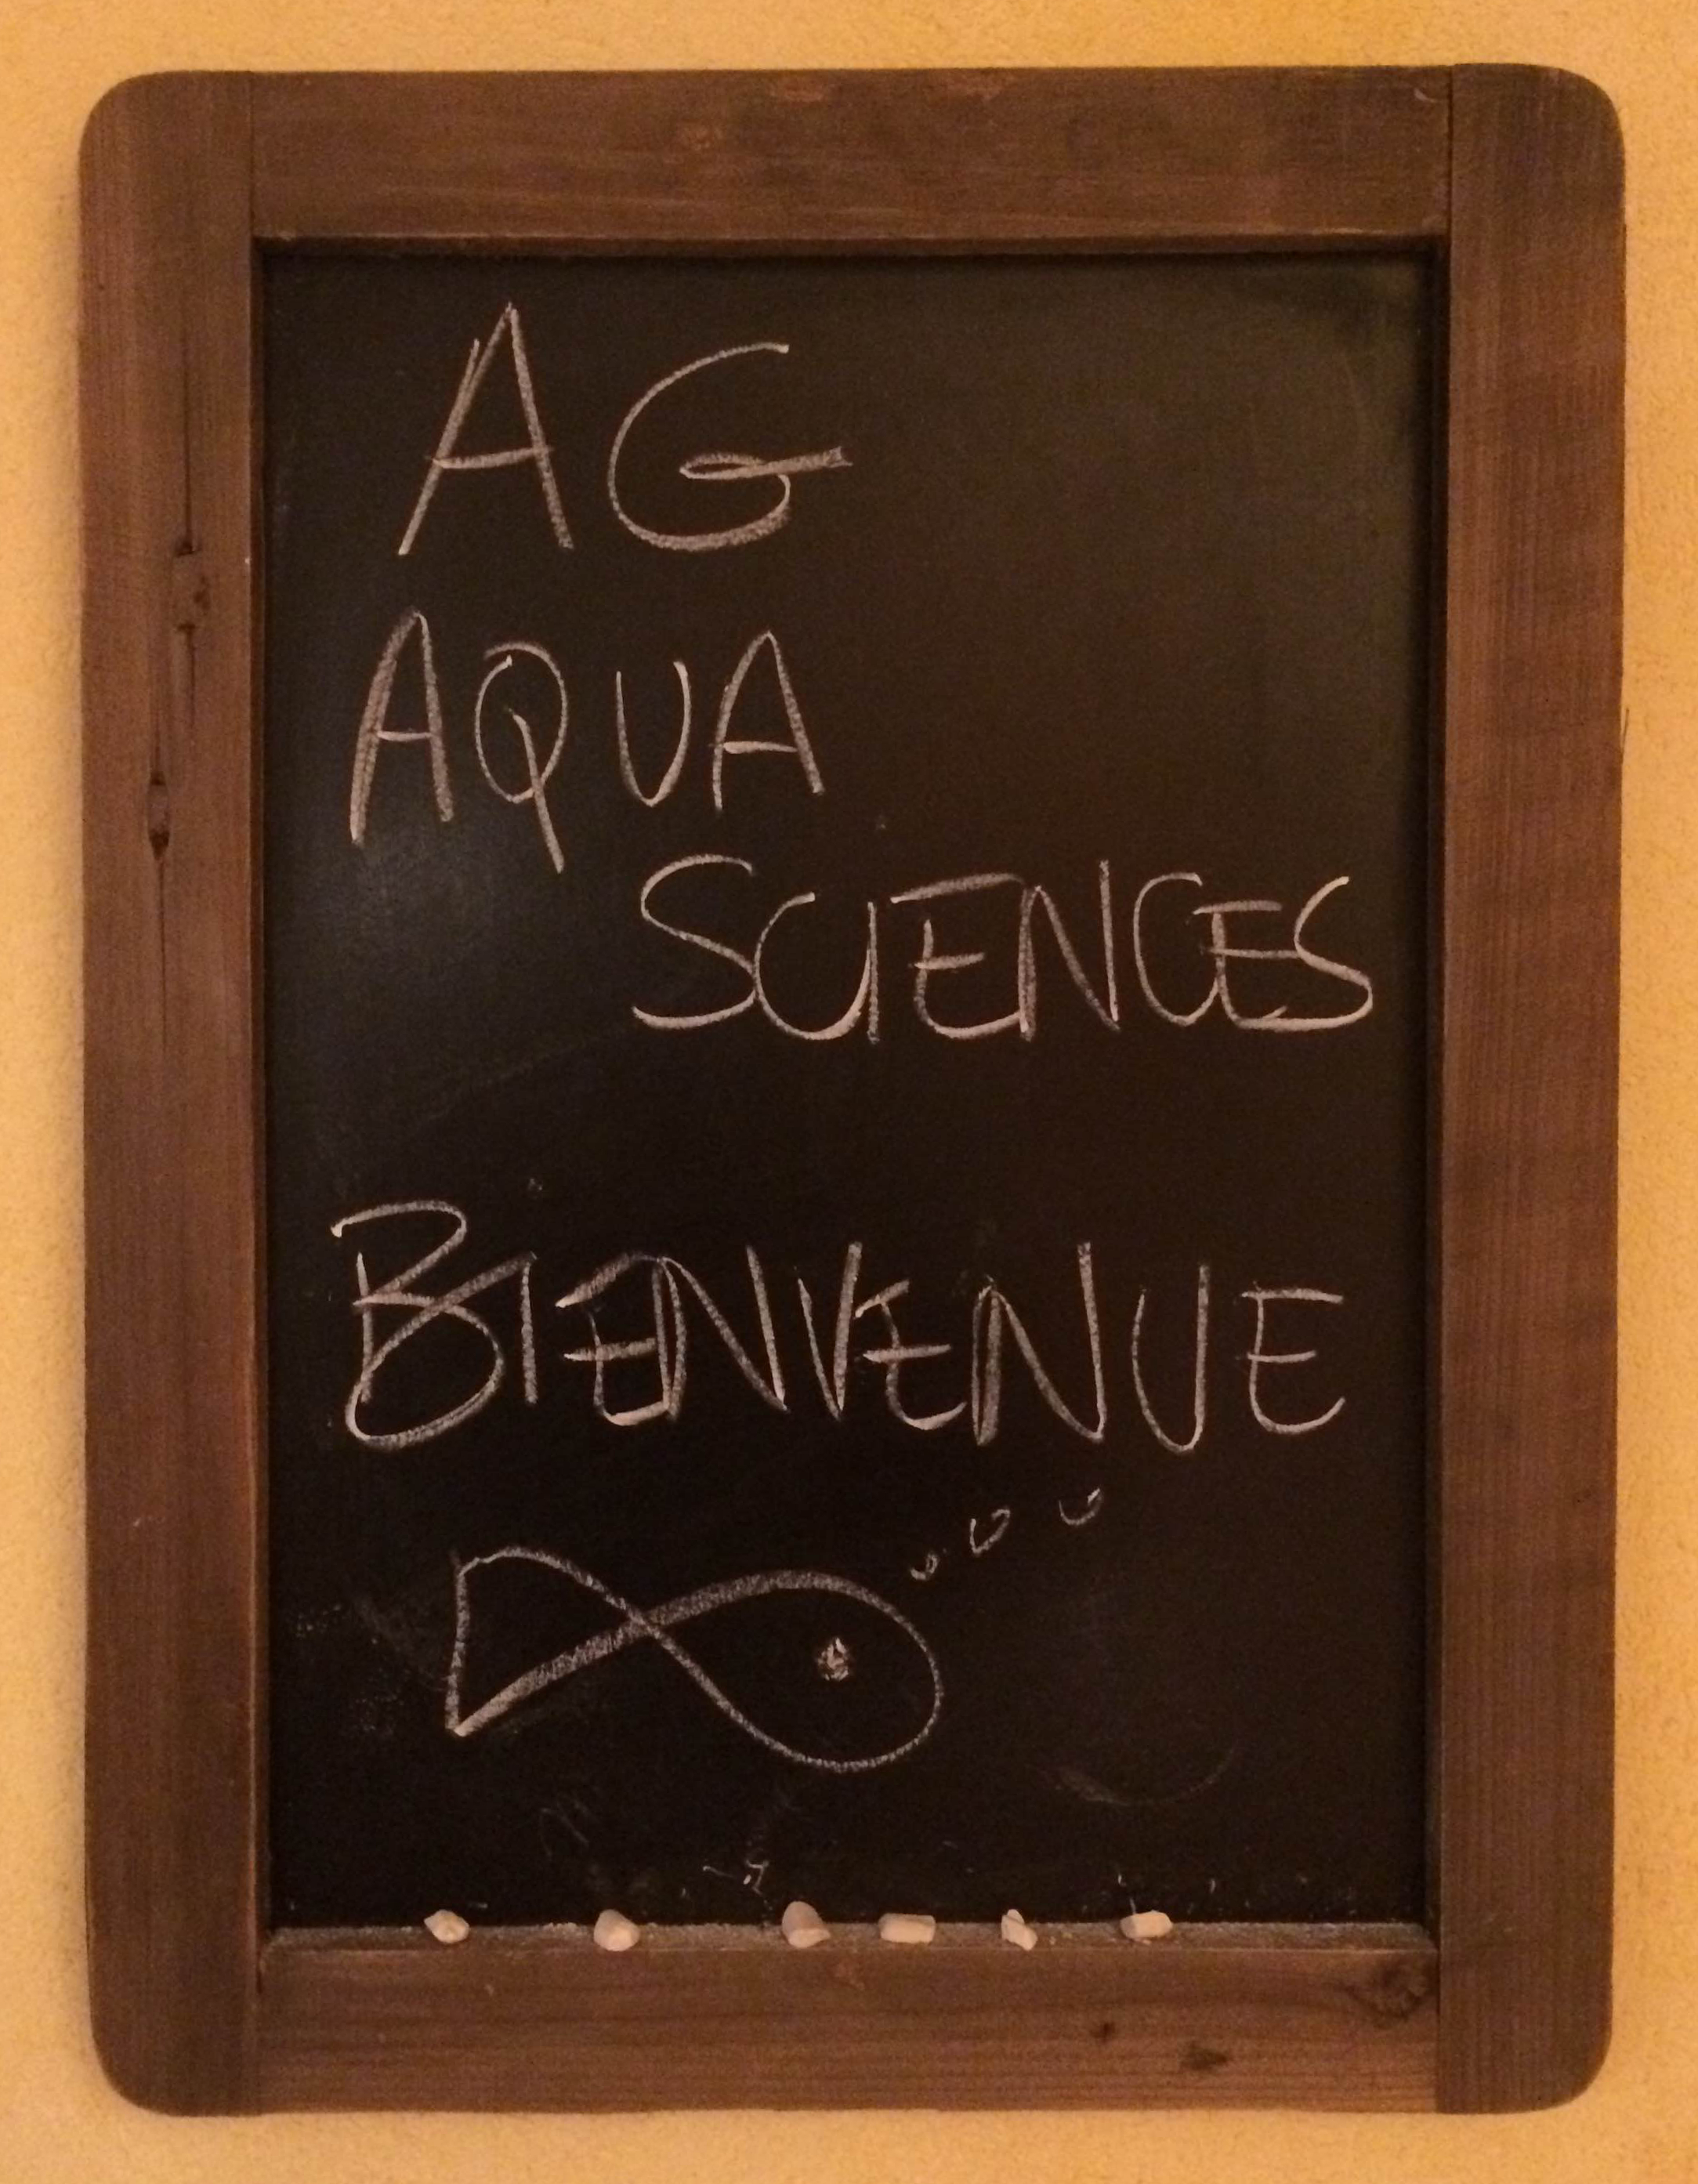 AG
AQUA
SCIENCES
BIENVENUE